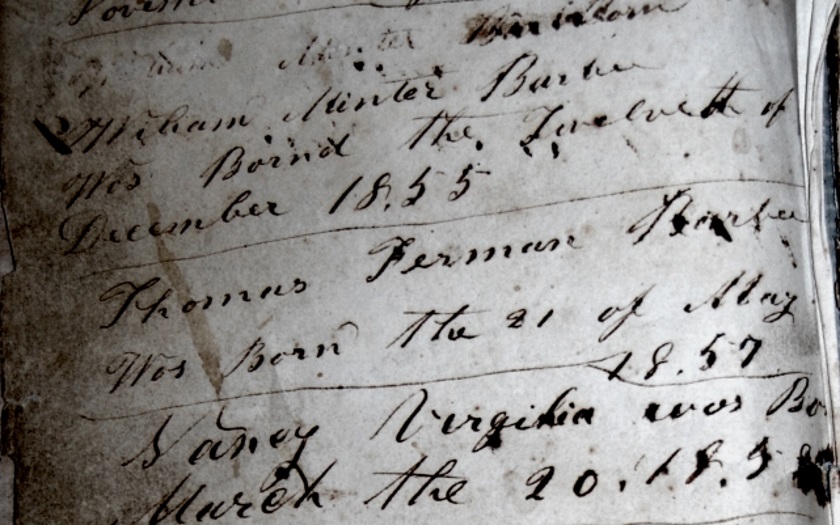 Minter
William Minter Barbee
Was Bornd the Twelveth of
December 18.55
Thomas Ferman Barbee
Was Born the 21 of May
18.57
Nancy Virgilia was Bo
March the 20. 18.5